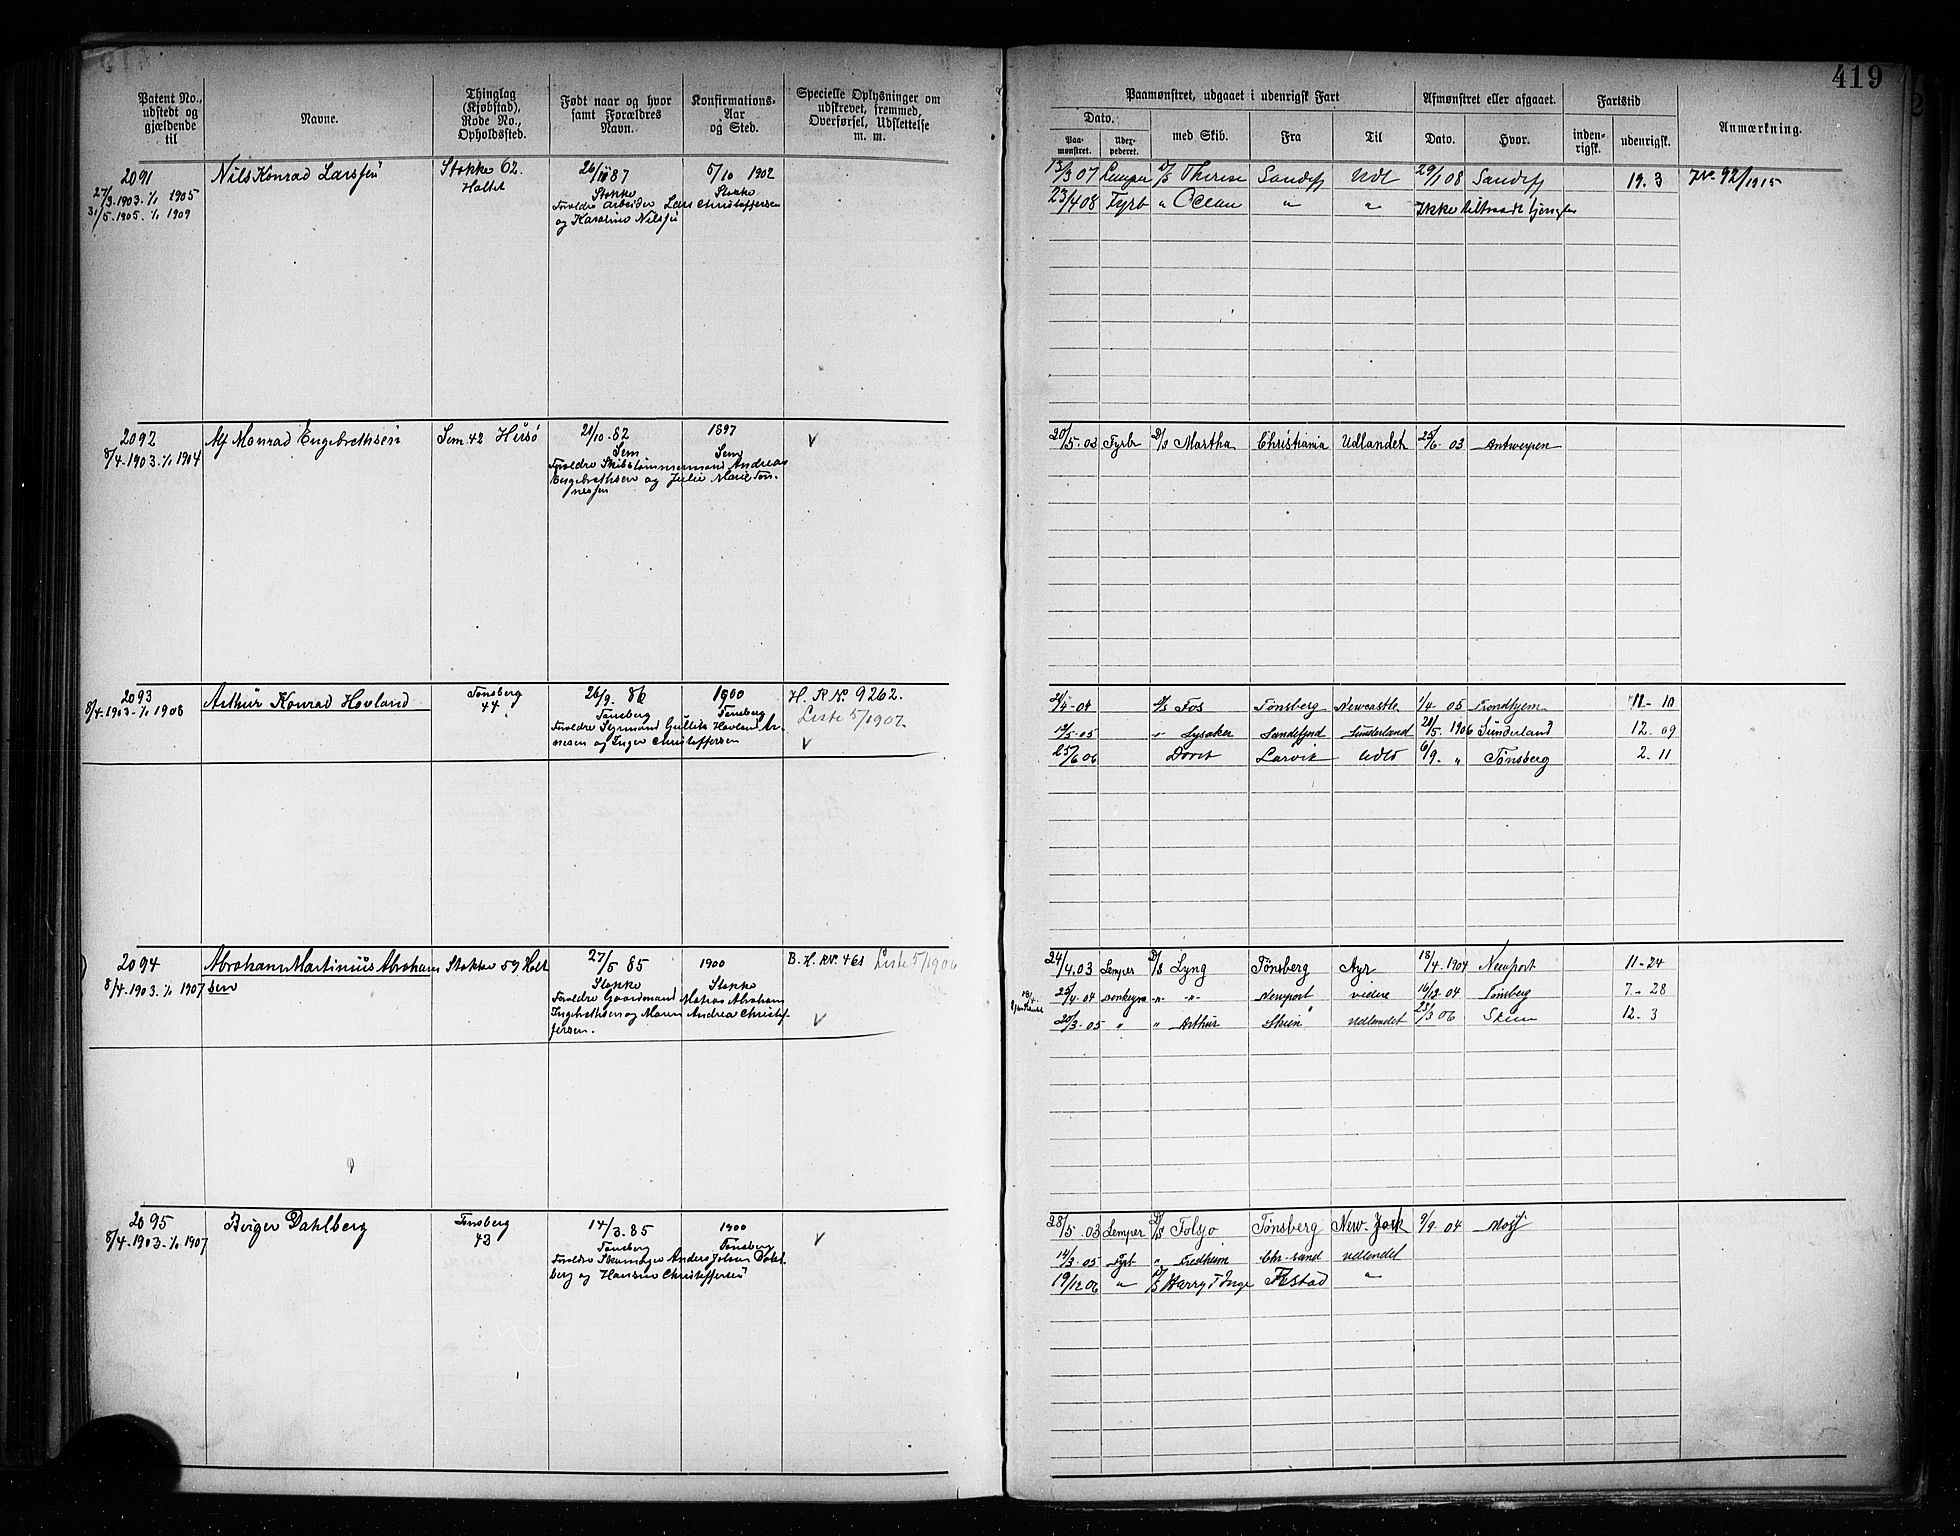 419
Patent No., udstedt og gjældende til
Navne.
Thinglag (Kjøbstad), Rode No., Opholdssted.
Født naar og hvor samt Forældres Navn.
Konfirmations- Aar og Sted.
Specielle Oplysninger om udskrevet, fremmed, Overførsel, Udslettelse m. m.
Paamønstret, udgaaet i udenrigsk Fart
Afmønstret eller afgaaet.
Fartstid
Anmærkning.
Dato.
Paa- mønstret.
med Skib.
Fra
Til
Dato.
Hvor.
inden- rigsk.
udenrigsk.
2091
27/3.1903.1/1 1905
31/5.1905.1/1 1909
Nils Konrad Larssen
Stokke 62.
Holtet
26/10 87
Stokke
Forældre Arbeider Lars Christoffersen
og Karoline Nilssen
5/10 1902
Stokke
13/3 07 Lemper D/S Therese Sandefj Udl 29/1 08 Sandefj 19.3 JNo 92/1915
23/4 08 Fyrb " Ocean " " Ikke tiltraadt tjenesten
2092
8/4.1903.1/1 1904
Alf Monrad Engebrethsen
Sem 42 Husø
21/10.82
Sem
Forældre Skibstømmermand Andreas
Engebrethsen og Julie Marie Tøn-
nessen
1897
Sem
V
20/5.03 Fyrbr D/S Martha Christiania Udlandet 25/6 03 Antwerpen
2093
8/4.1903-1/1 1908
Arthur Konrad Hovland
Tønsberg
44
26/9. 86
Tønsberg
Forældre Sigmund Gullik Hovland Ar-
nesen og Inger Christoffersen
1900
Tønsberg
H. R No. 9262.
Liste 5/1907.
V
21/4-04 D/S Fos Tønsberg Newcastle 1/4 05 Trondhjem 11-10
12/5-05 " Lysaker Sandefjord Sunderland 21/5 1906 Sunderland 12.09
25/6 06 Doris Larvik Udld 6/9. " Tønsberg 2.11
2094
8/4.1903.1/1 1907
Abraham Martinius Abraham
sen
Stokke 59 Holt
27/5 85
Stokke
Forældre Gaardmand Matias Abraham
Ingebrethsen og Maren Andrea Christof-
fersen.
1900
Stokke
B. H. RNo. 461 Liste 5/1906
V
24/4.03 Lemper D/S Lyng Tønsberg Ayr 18/4.1904 Newport 11-24
25/4-04 " " Newport videre 16/12-04 Tønsberg 7-28
20/3-05 " " Arthur Skien udlandet 23/3 06 Skien 12-3
2095
8/4.1903.1/1 1907
Birger Dahlberg
Tønsberg
43
14/3.85
Tønsberg
Forældre Skomager Anders Johan Dahl-
berg og Hansine Christoffersen
1900
Tønsberg
V
28/5.03 Lemper D/S Folsjø Tønsberg New-York 9/9-04
14/3-05 Fyrb " Fredheim Chr-sand udlandet
19/12 06 " D/S Harry T Inge Fr.stad "